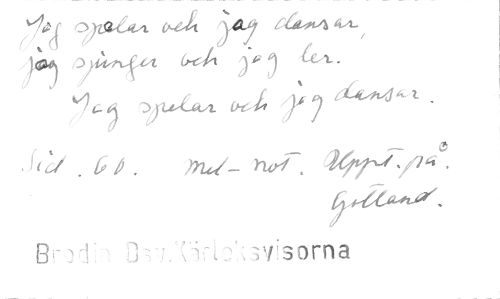 Jag spelar och jag dansar,
jag sjunger och jag ler.
Jag spelar och jag dansar.
Sid. 60. mel-not. Uppt. på.
Gottland.
Brodin Dav. Kärleksvisorna